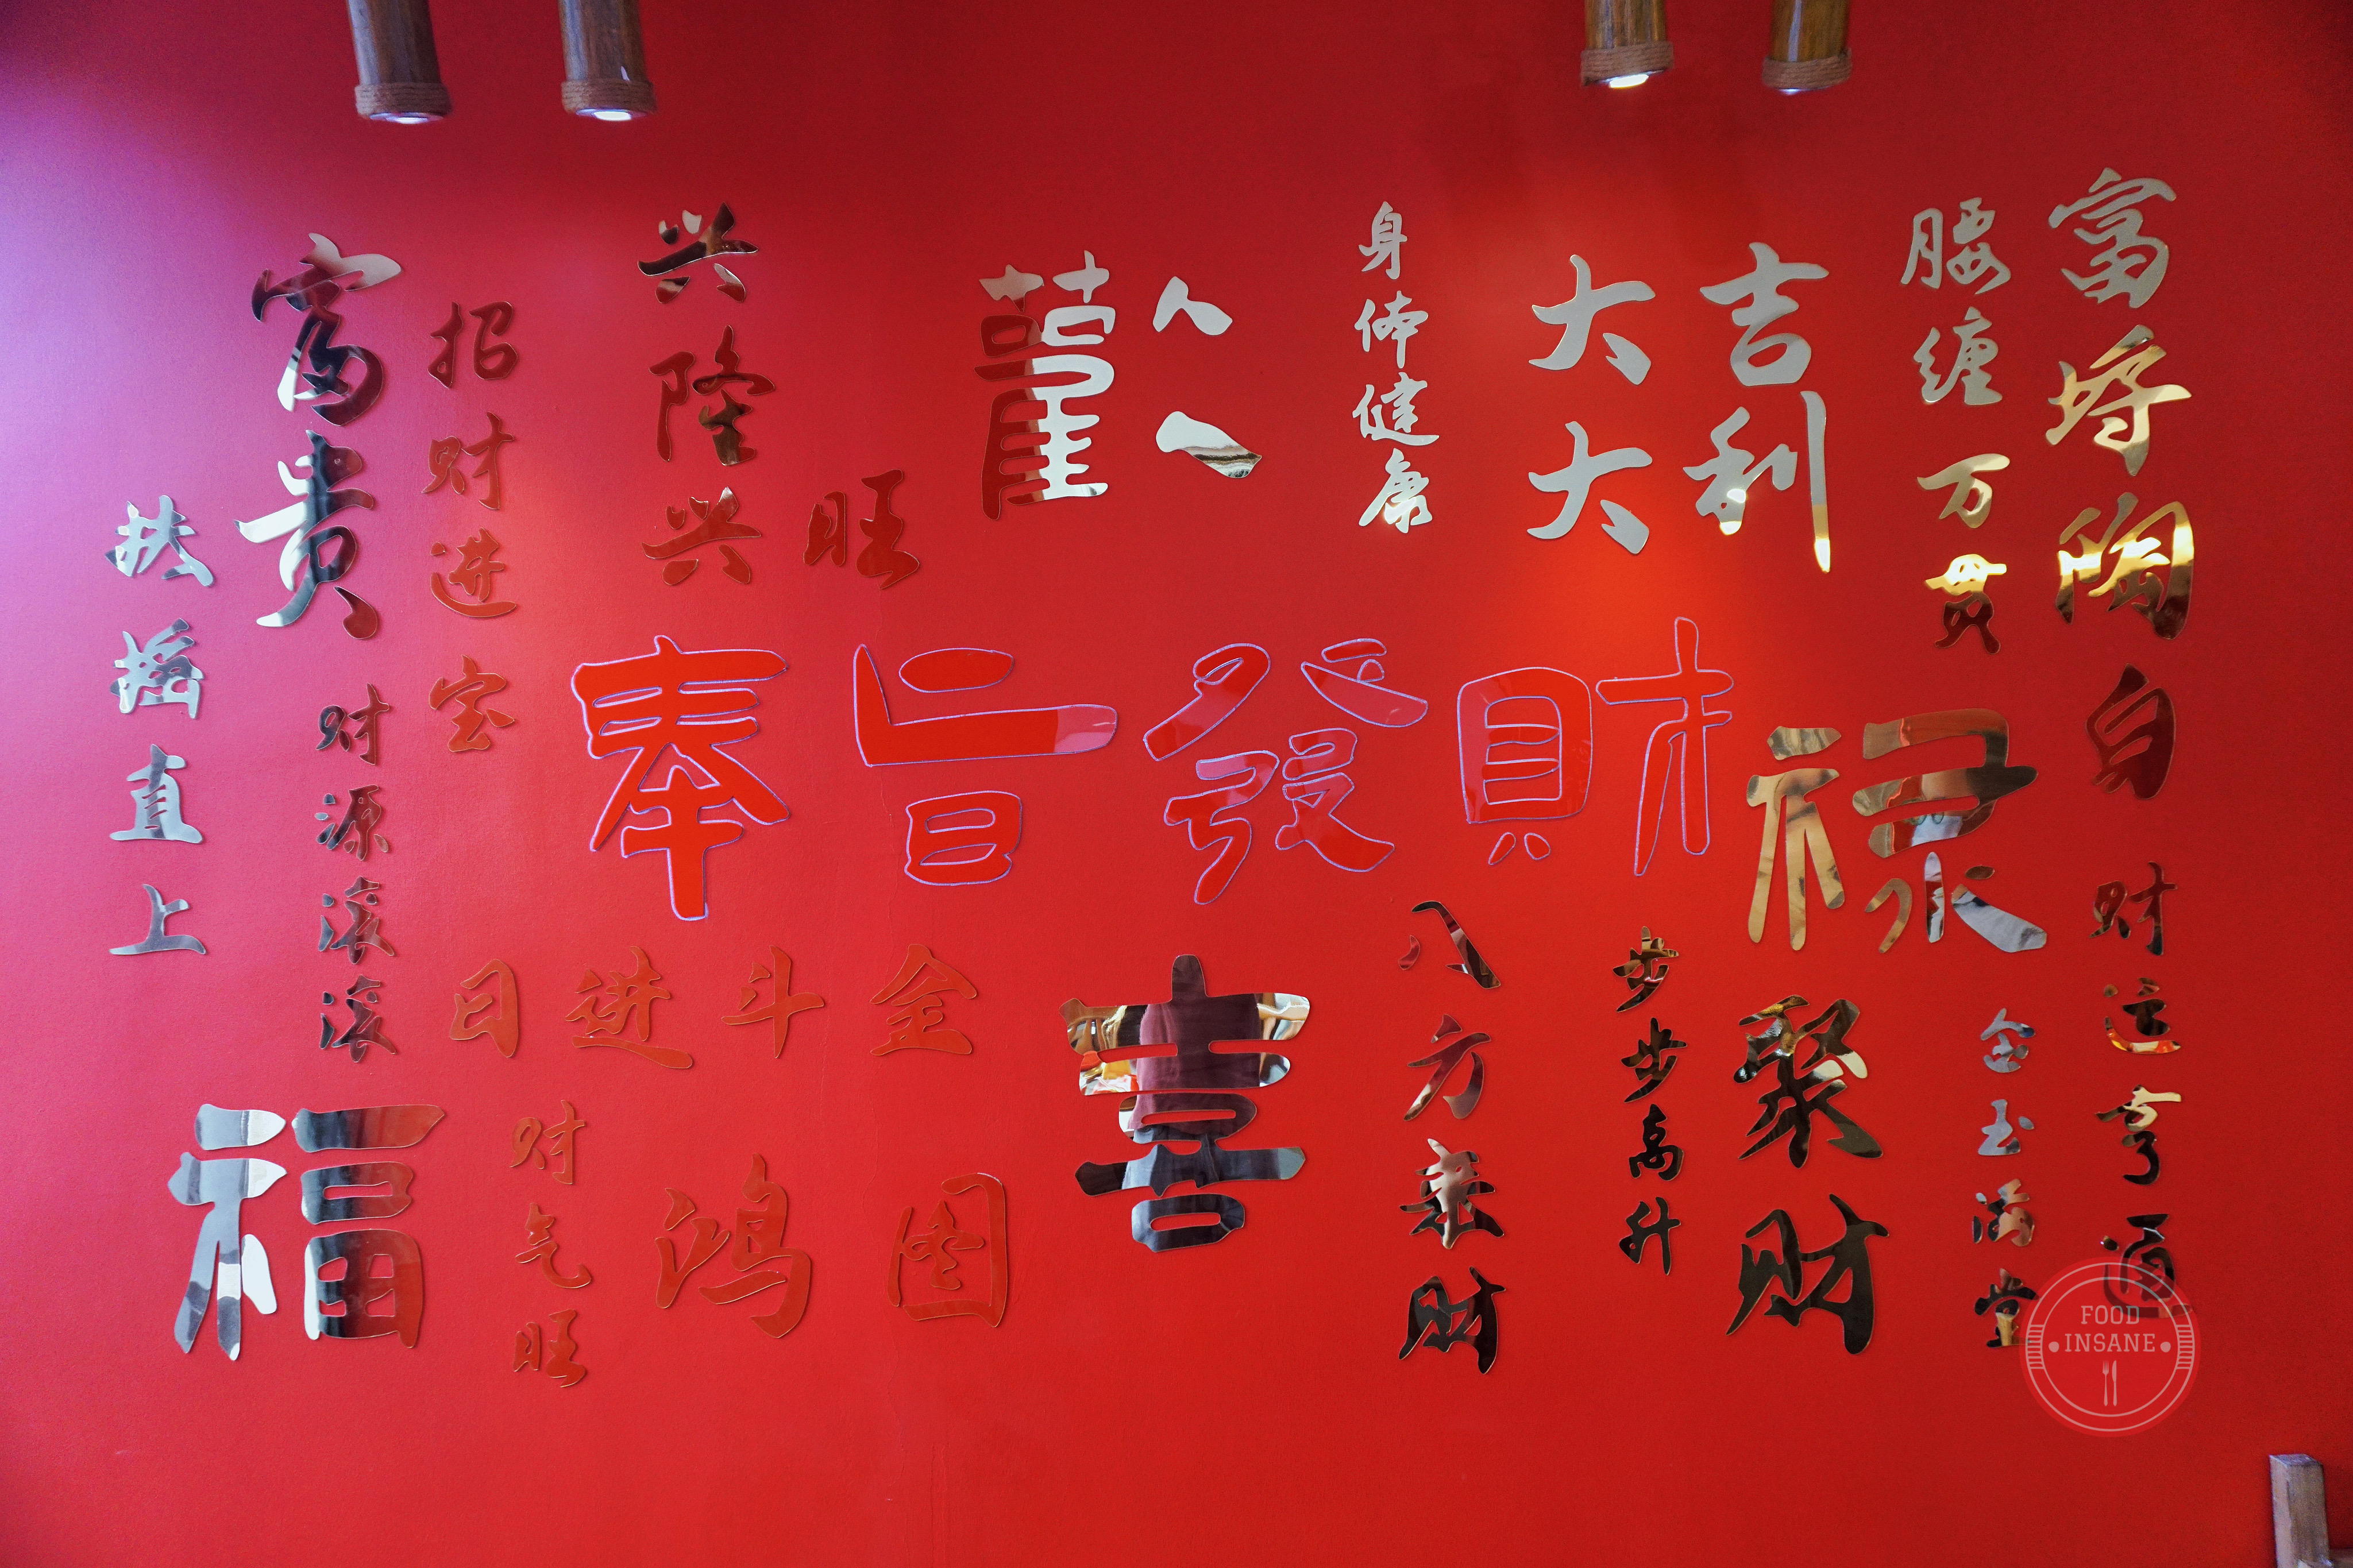 扶摇直上
富贵
招财进宝
财源滚滚
兴隆兴旺
歡
身体健康
大吉
大利
腰缠万贯
富埒陶白
奉旨發財
禄
日进斗金
喜
八方来财
步步高升
聚财
金玉满堂
财运亨通
福
财气旺
鸿图
FOOD
INSANE